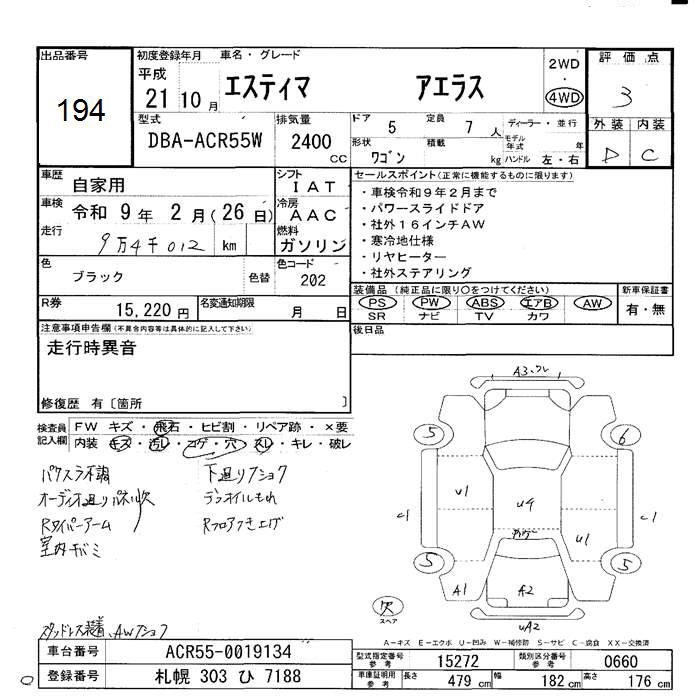 出品番号
194
初度登録年月 車名・グレード
平成
21 10 月
エスティマ アエラス
2WD
・
4WD
評価点
3
型式
DBA-ACR55W
排気量
2400
CC
ドア 5
定員 7 人
ディーラー・並行
形状 ワゴン
積載 kg
モデル年式 年
ハンドル 左・右
外装 内装
D C
車歴 自家用
車検 令和 9 年 2 月(26 日)
走行 9万4千012 km
シフト IAT
冷房 AAC
燃料 ガソリン
色 ブラック 色替
色コード 202
R券 15,220 円
名変通知期限 月 日
セールスポイント(正常に機能するものに限ります)
・車検令和9年2月まで
・パワースライドドア
・社外16インチAW
・寒冷地仕様
・リヤヒーター
・社外ステアリング
装備品 (純正品に限り○をつけてください)
PS PW ABS エアB AW
SR ナビ TV カワ
新車保証書
有・無
後日品
注意事項申告欄(不具合内容等は具体的に記入して下さい)
走行時異音
修復歴 有〔箇所 〕
検査員記入欄
FW キズ・飛石・ヒビ割・リペア跡・×要
内装 キズ・汚レ・コゲ・穴・スレ・キレ・破レ
パワスラ不調
下廻りクショク
デフオイルもれ
Rワイパーアーム
Rフロアつき上げ
A3、ワレ
5 6
U1 U4 U1
C1 C1
5 5
A1 A2
UA2
欠
スペア
A-キズ E-エクボ U-凹み W-補修跡 S-サビ C-腐食 XX-交換済
車台番号 ACR55-0019134
登録番号 札幌 303 ひ 7188
型式指定番号 参考 15272
類別区分番号 参考 0660
車庫証明用 参考 長さ 479 cm 幅 182 cm 高さ 176 cm